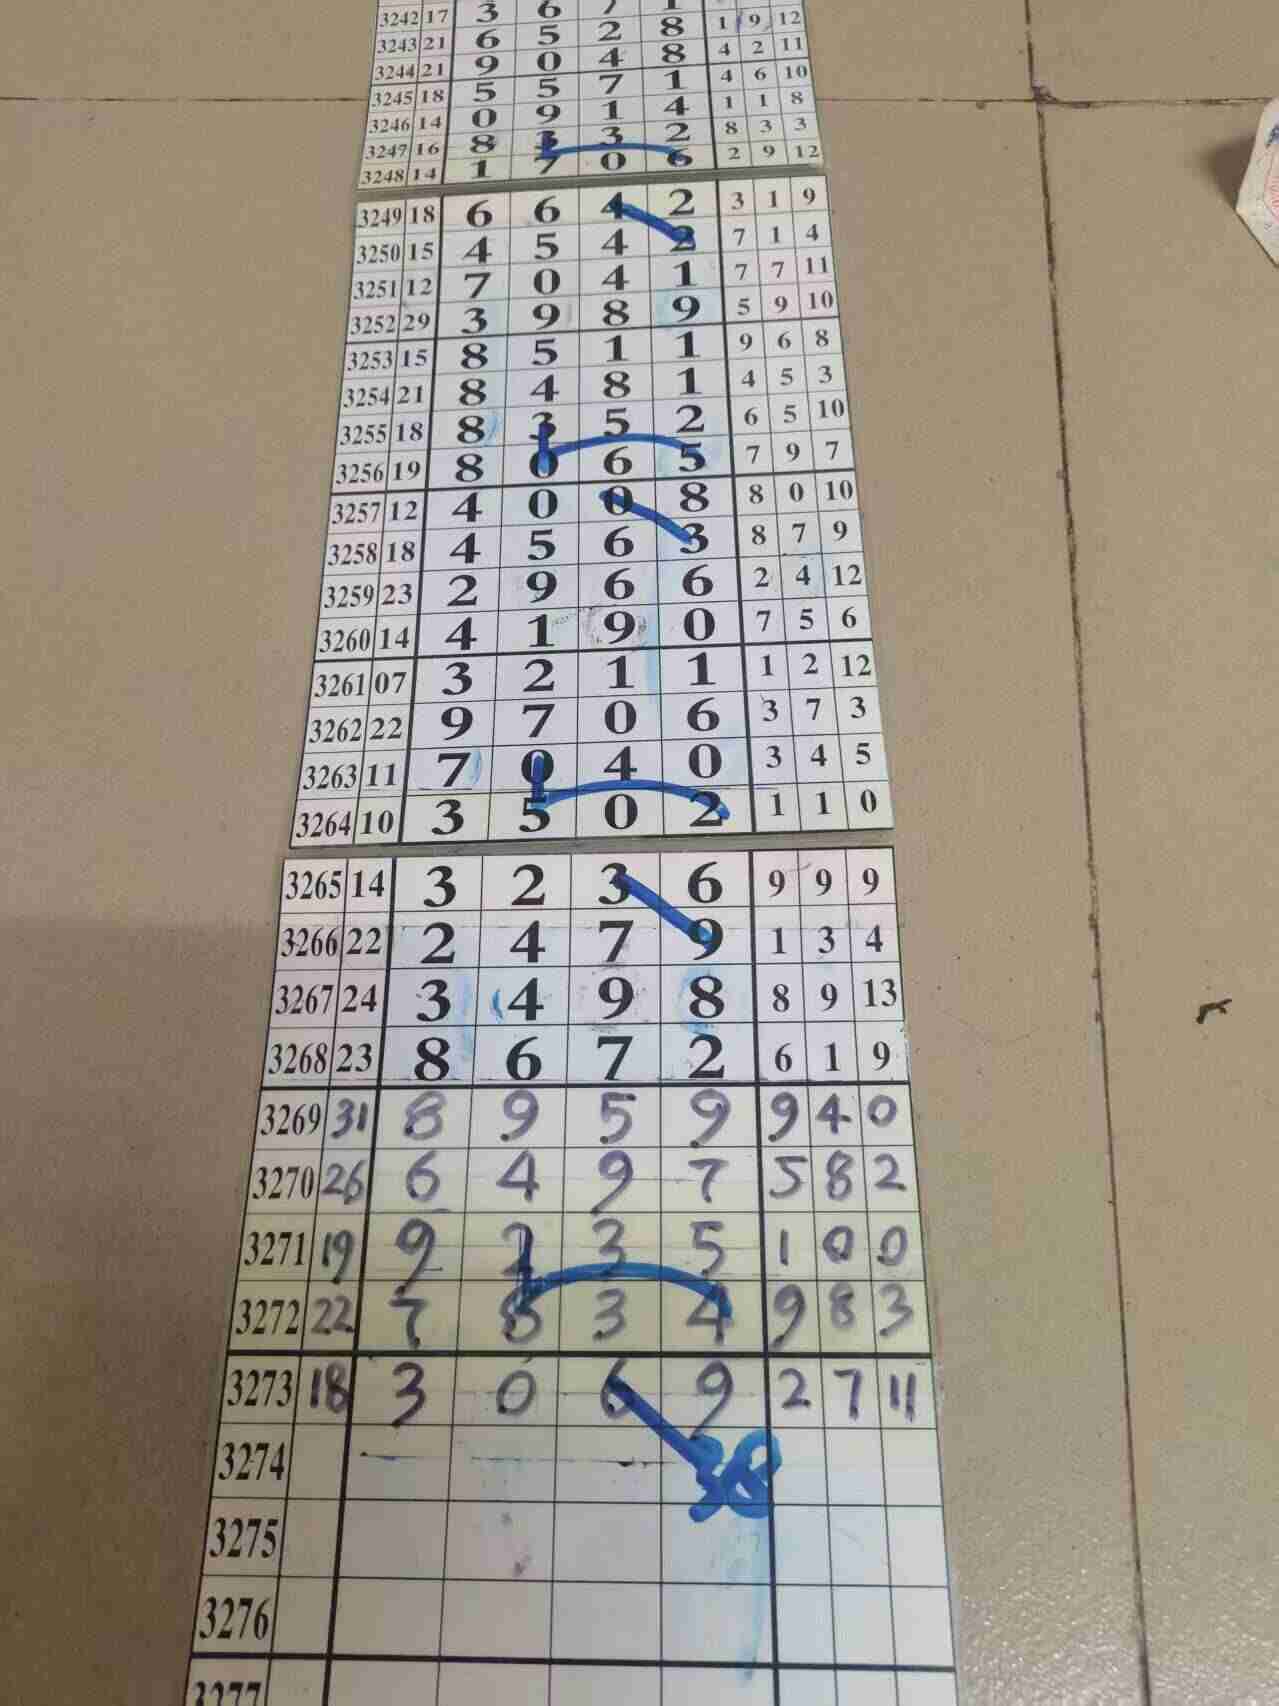 3242 17 3 6 7 1 1 9 12
3243 21 6 5 2 8 4 2 11
3244 21 9 0 4 8 4 6 10
3245 18 5 5 7 1 1 1 8
3246 14 0 9 1 4 8 3 3
3247 16 8 3 3 2 2 9 12
3248 14 1 7 0 6
3249 18 6 6 4 2 3 1 9
3250 15 4 5 4 2 7 1 4
3251 12 7 0 4 1 7 7 11
3252 29 3 9 8 9 5 9 10
3253 15 8 5 1 1 9 6 8
3254 21 8 4 8 1 4 5 3
3255 18 8 3 5 2 6 5 10
3256 19 8 0 6 5 7 9 7
3257 12 4 0 0 8 8 0 10
3258 18 4 5 6 3 8 7 9
3259 23 2 9 6 6 2 4 12
3260 14 4 1 9 0 7 5 6
3261 07 3 2 1 1 1 2 12
3262 22 9 7 0 6 3 7 3
3263 11 7 0 4 0 3 4 5
3264 10 3 5 0 2 1 1 0
3265 14 3 2 3 6 9 9 9
3266 22 2 4 7 9 1 3 4
3267 24 3 4 9 8 8 9 13
3268 23 8 6 7 2 6 1 9
3269 31 8 9 5 9 9 4 0
3270 26 6 4 9 7 5 8 2
3271 19 9 2 3 5 1 0 0
3272 22 7 8 3 4 9 8 3
3273 18 3 0 6 9 2 7 11
3274 38
3275
3276
3277